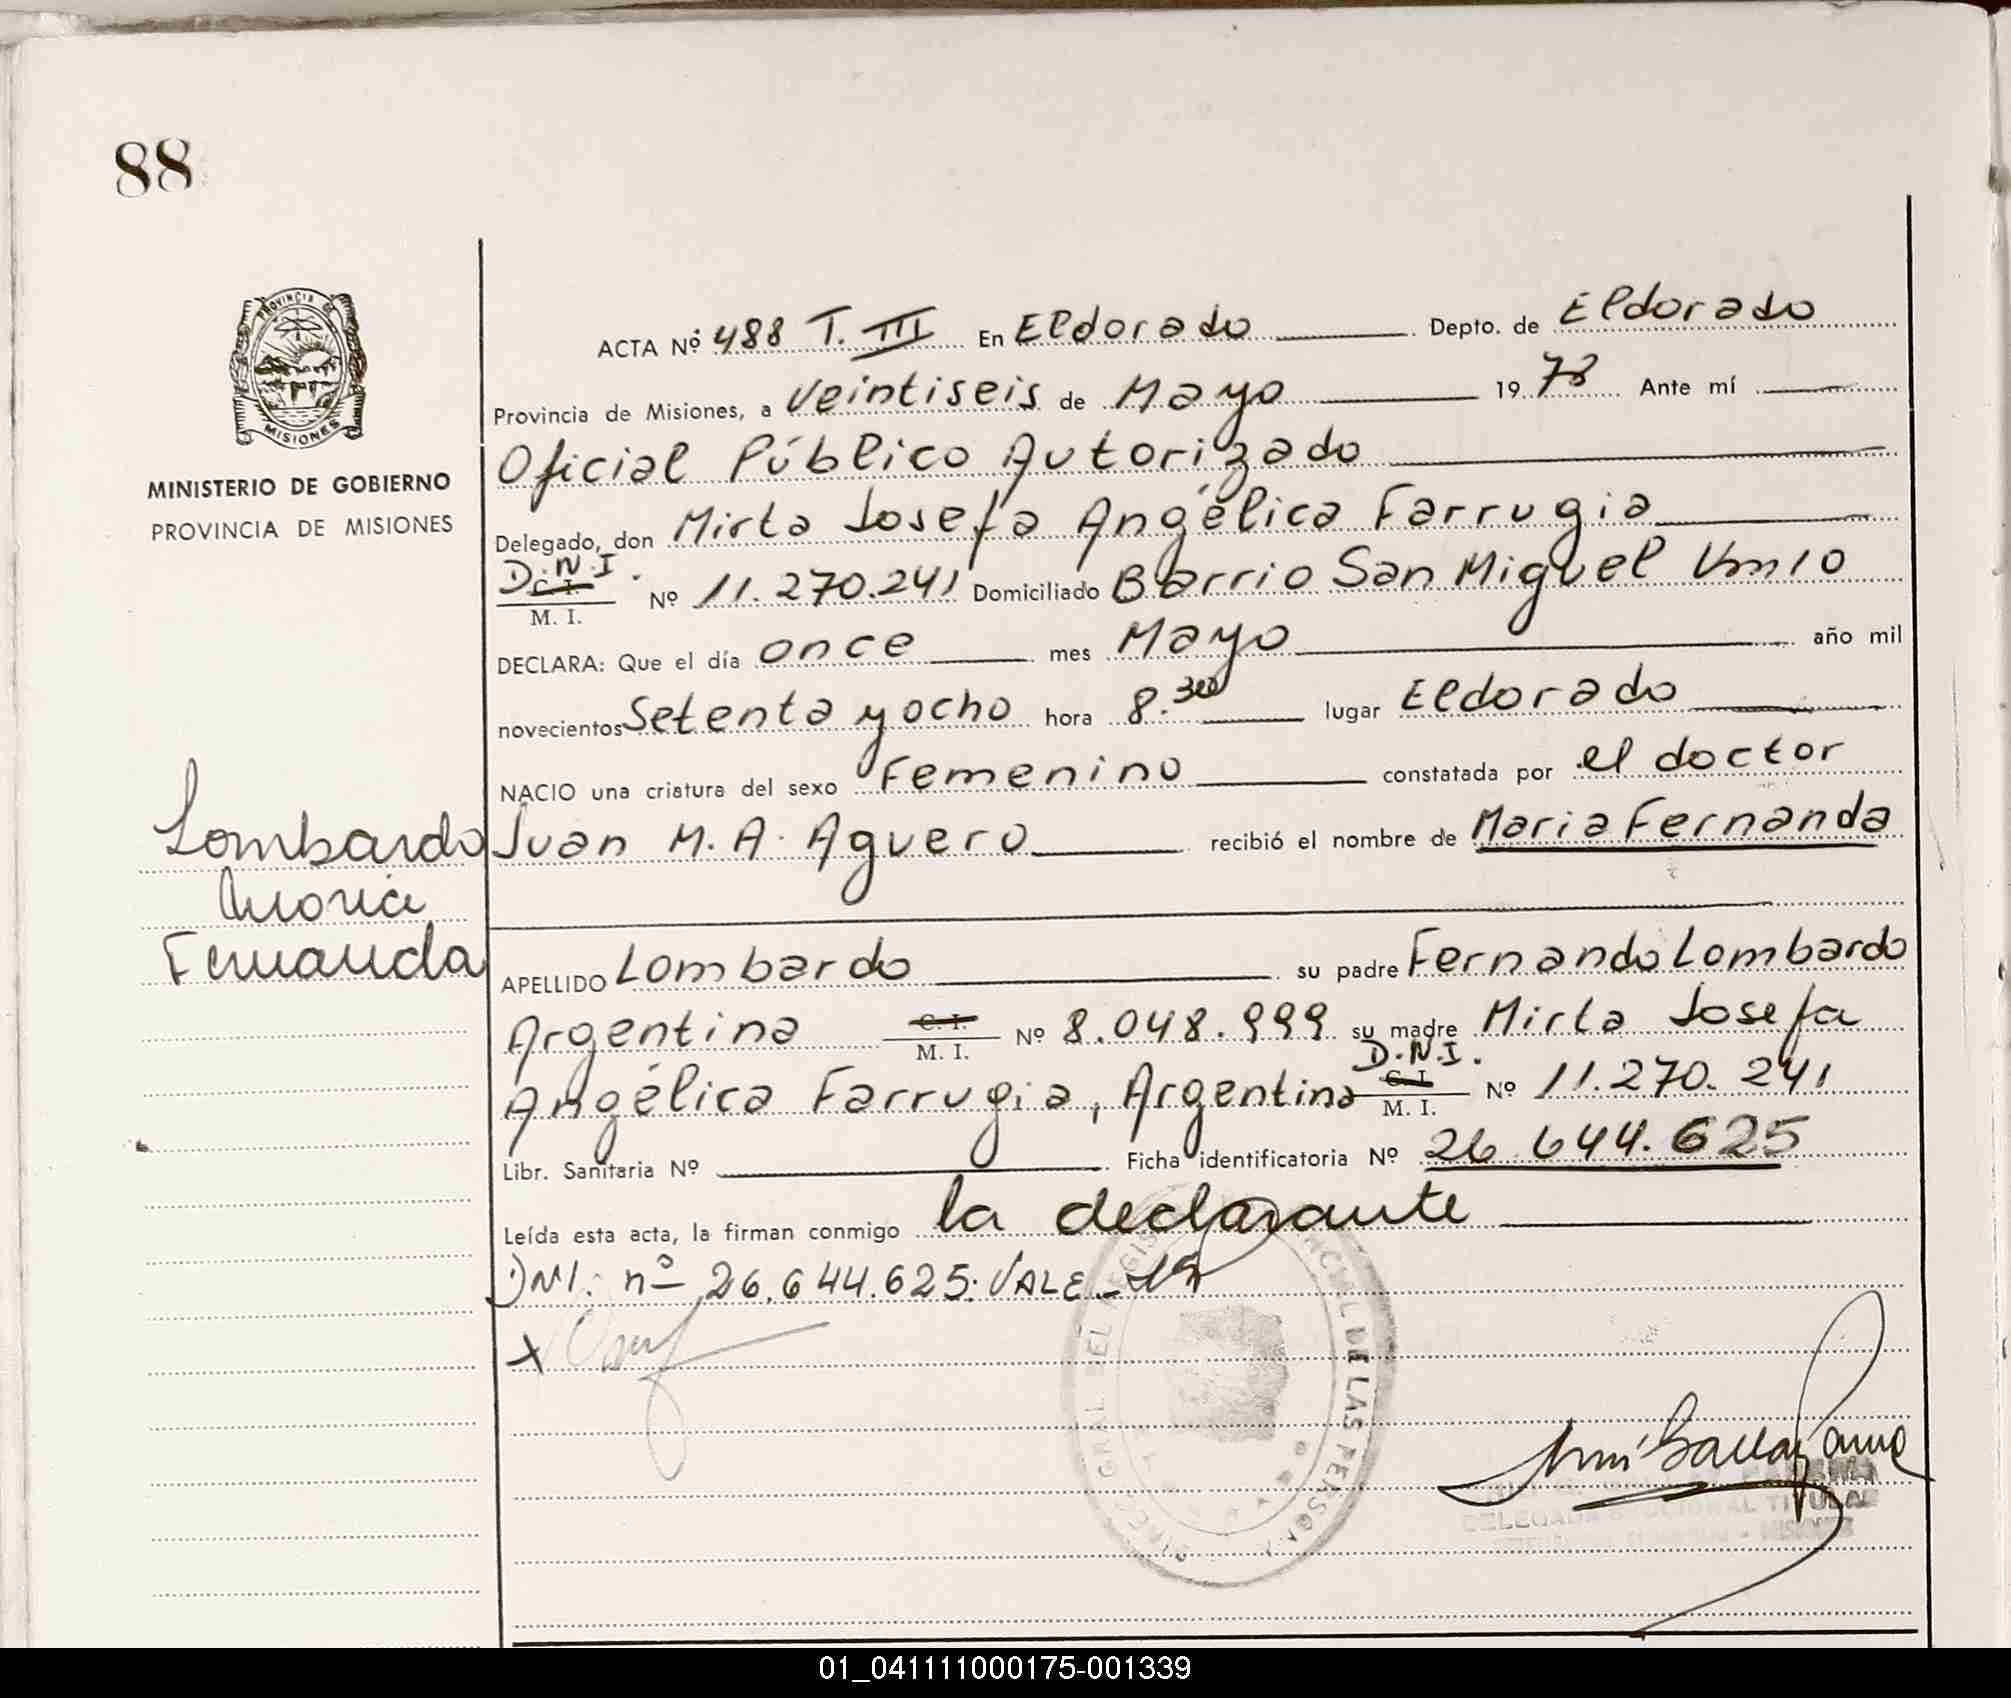 88
PROVINCIA DE
MISIONES
MINISTERIO DE GOBIERNO
PROVINCIA DE MISIONES
ACTA Nº 488 T. III En Eldorado Depto. de Eldorado
Provincia de Misiones, a veintiseis de Mayo 19 78 Ante mí
Oficial Público Autorizado
Delegado, don Mirta Josefa Angélica Farrugia
D.N.I. C. I. M. I. Nº 11.270.241 Domiciliado Barrio San Miguel Km10
DECLARA: Que el día once mes Mayo año mil
novecientos Setenta y ocho hora 8.30 lugar Eldorado
NACIO una criatura del sexo Femenino constatada por el doctor
Juan M. A. Aguero recibió el nombre de Maria Fernanda
Lombardo
Maria
Fernanda
APELLIDO Lombardo su padre Fernando Lombardo
Argentina C. I. M. I. Nº 8.048.999 su madre Mirta Josefa
Angélica Farrugia, Argentina D.N.I. C. I. M. I. Nº 11.270.241
Libr. Sanitaria Nº Ficha identificatoria Nº 26.644.625
Leída esta acta, la firman conmigo la declarante
DNI: nº 26.644.625. VALE
X
DE LAS PERSON
TITULAR
01_041111000175-001339